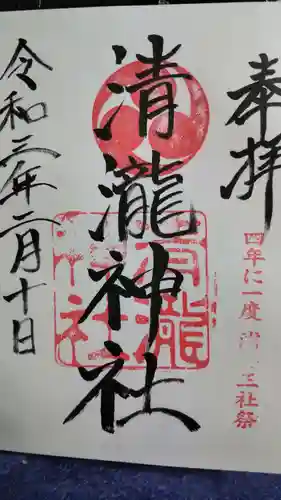 奉拝
四年に一度 三社祭
清瀧神社
清瀧神社
令和三年二月十日